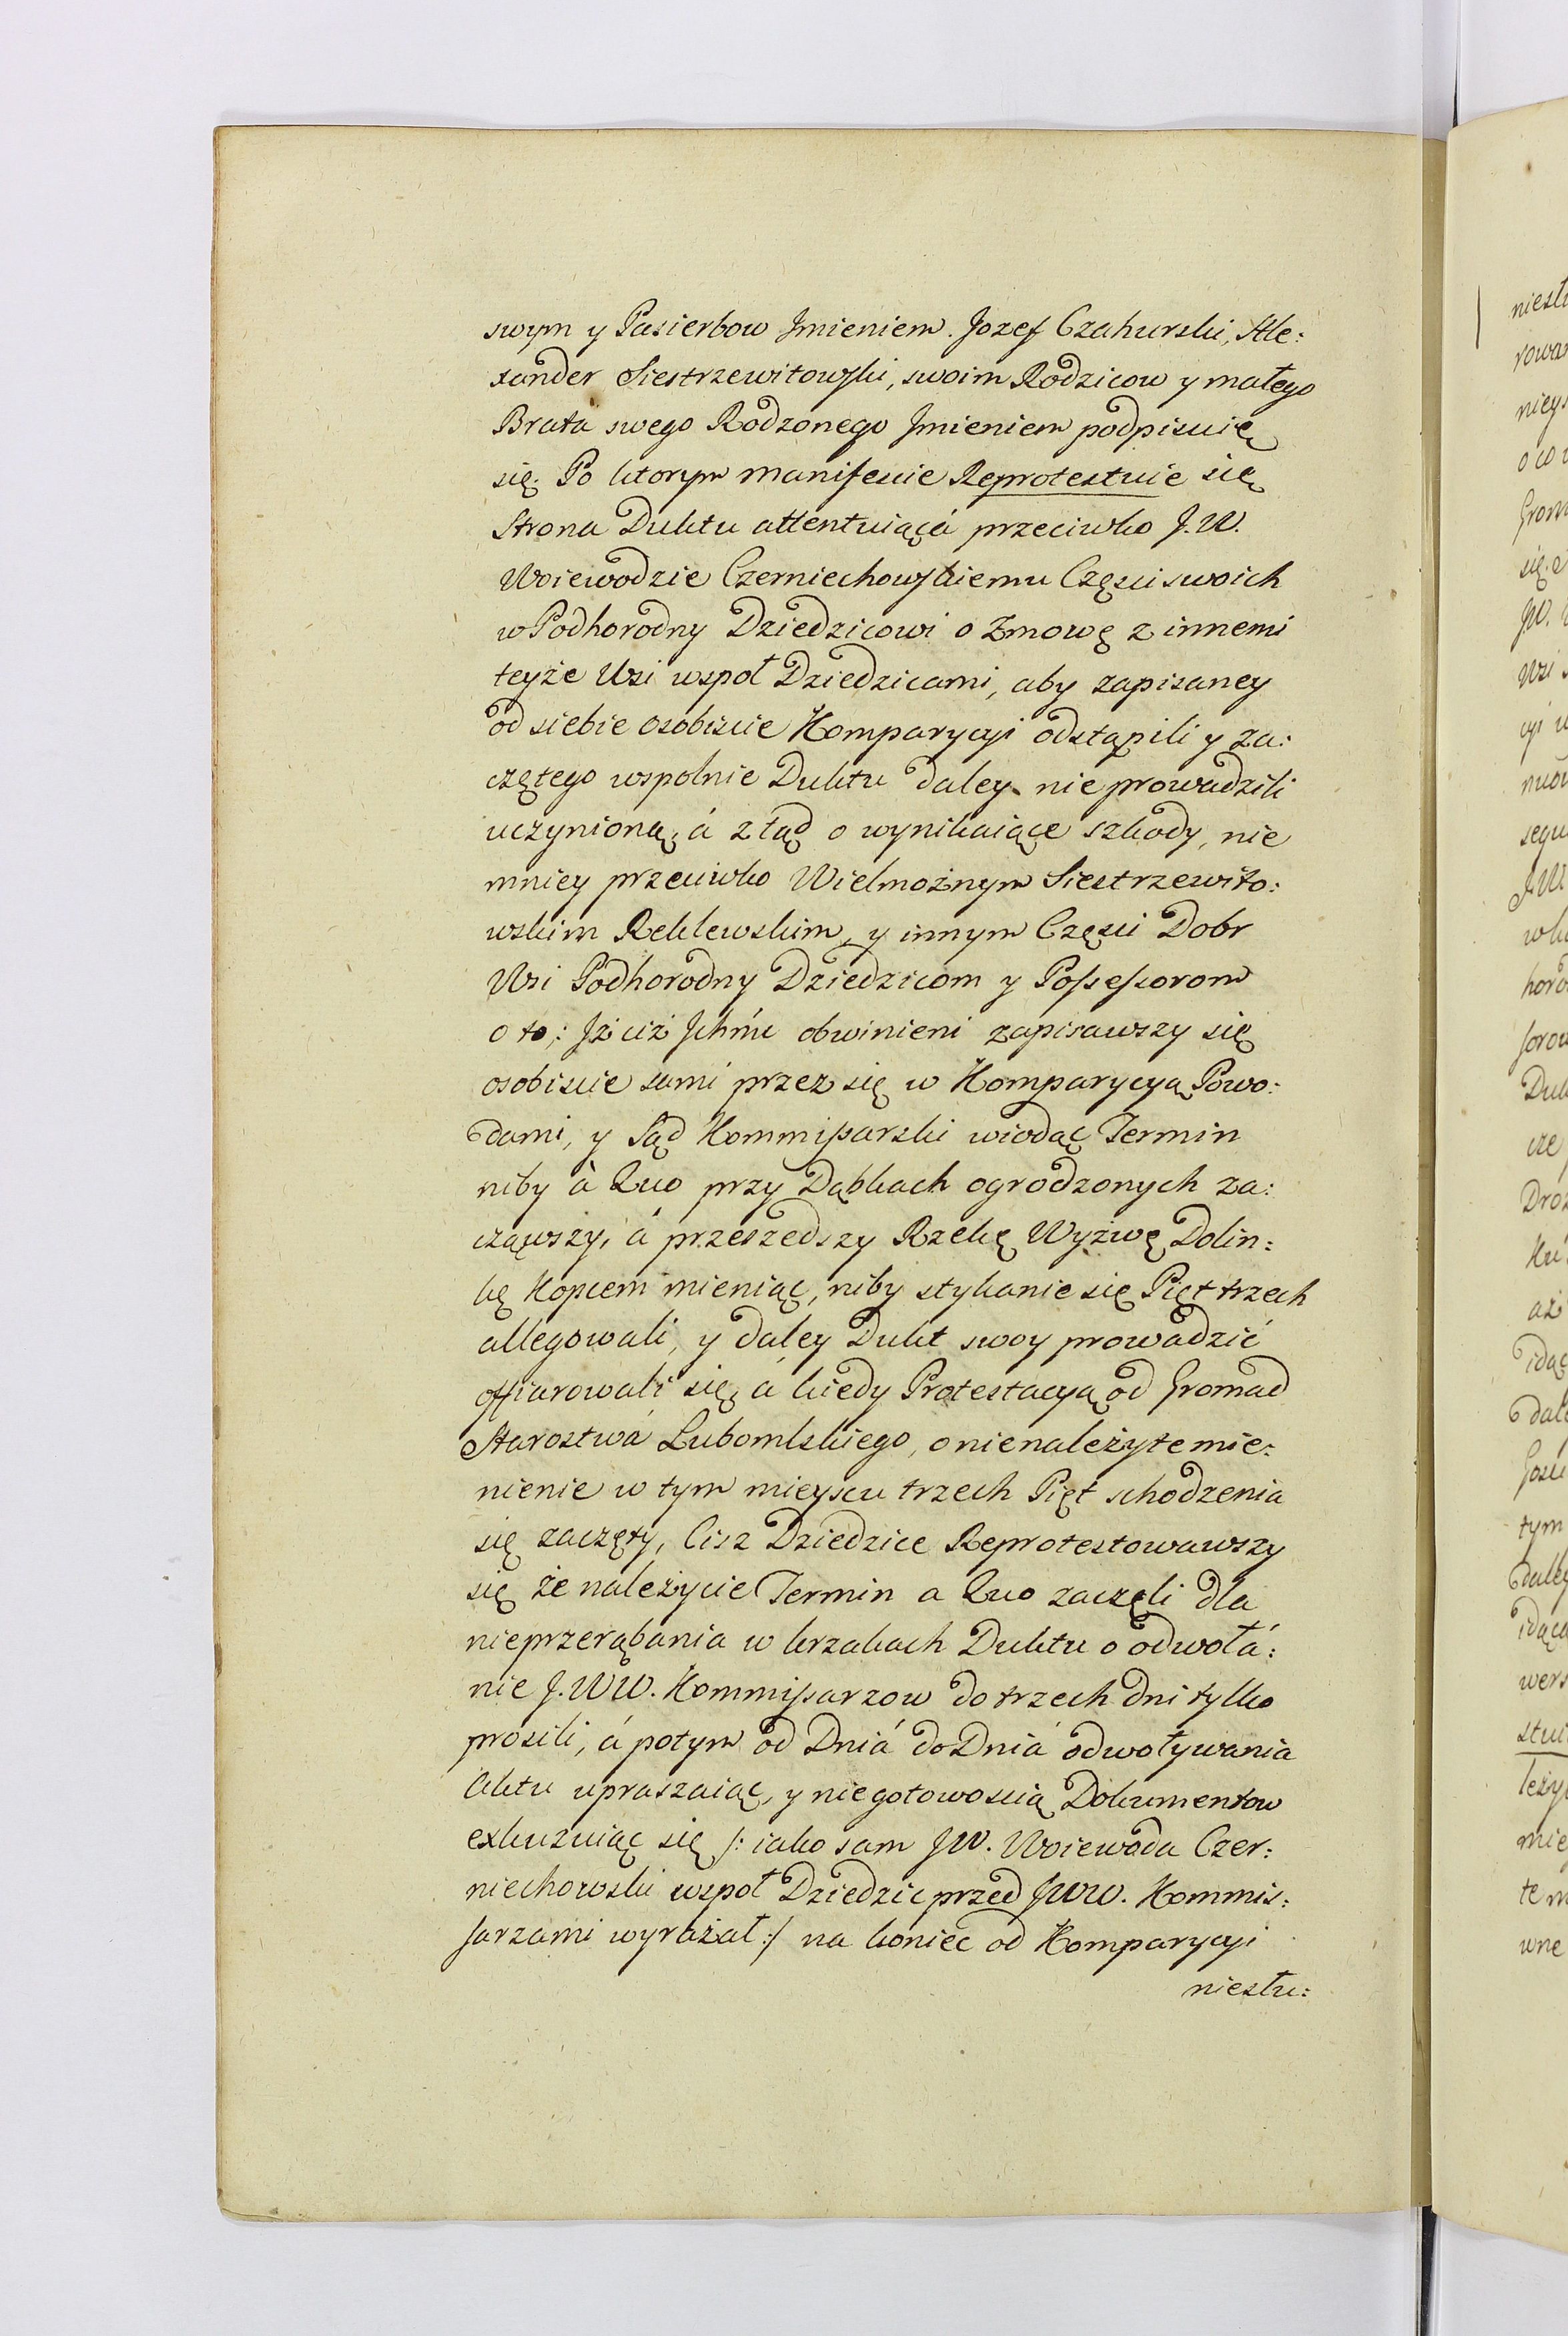 swym y Pasierbow Jmieniem. Jozef Czahurski, Ale:
xander Siestrzewitowski, swoim Rodzicow y małego
Brata swego Rodzonego Jmieniem podpisuię
się. Po ktorym manifescie Reprotestuie się
Strona Duktu attentuiącá przeciwko J. W.
Woiewodzie Czerniechowskiemu Części swoich
w Podhorodny Dziedzicowi o Zmowę z innemi
teyże Wsi wspoł Dziedzicami, aby zapisaney
od siebie osobiscie Komparycyi odstąpili y za:
czętego wspolnie Duktu daley nie prowadzili
uczynioną, á ztąd o wynikaiące szkody, nie
mniey przeciwko Wielmożnym Siestrzewito:
wskim Reklewskim, y innym Części Dobr
Wsi Podhorodny Dziedzicom y Possessorom
o to; Jż ciż Jchmć obwinieni zapisawszy się
osobiscie sami przez się w Komparycyą Powo:
dami, y Sąd Kommissarski wiodąc Termin
niby à Quo przy Dąbkach ogrodzonych za:
cząwszy, á przeszedszy Rzekę Wyżwę Dolin:
kę Kopcem mieniąc, niby stykanie się Pięt trzech
allegowali, y daley Dukt swoy prowadzić
offiarowali się, á kiedy Protestacyą od Gromad
Starostwá Lubomlskiego, o nienależyte mie:
nienie w tym mieyscu trzech Pięt schodzenia
się zaczęty, Cisz Dziedzice Reprotestowawszy
się że należycie Termin a Quo zaczęli dla
nieprzerąbania w krzakach Duktu o odwołá:
nie J. WW. Kommissarzow do trzech dni tylko
prosili, á potym od Dniá do Dniá odwoływania
Aktu upraszaiąc, y niegotowoscią Dokumentow
exkuzuiąc się /: iako sam JW. Woiewoda Czer:
niechowski wspoł Dziedzic przed JWW. Kommis:
sarzami wyrażał :/ na koniec od Komparycyi
niestu: